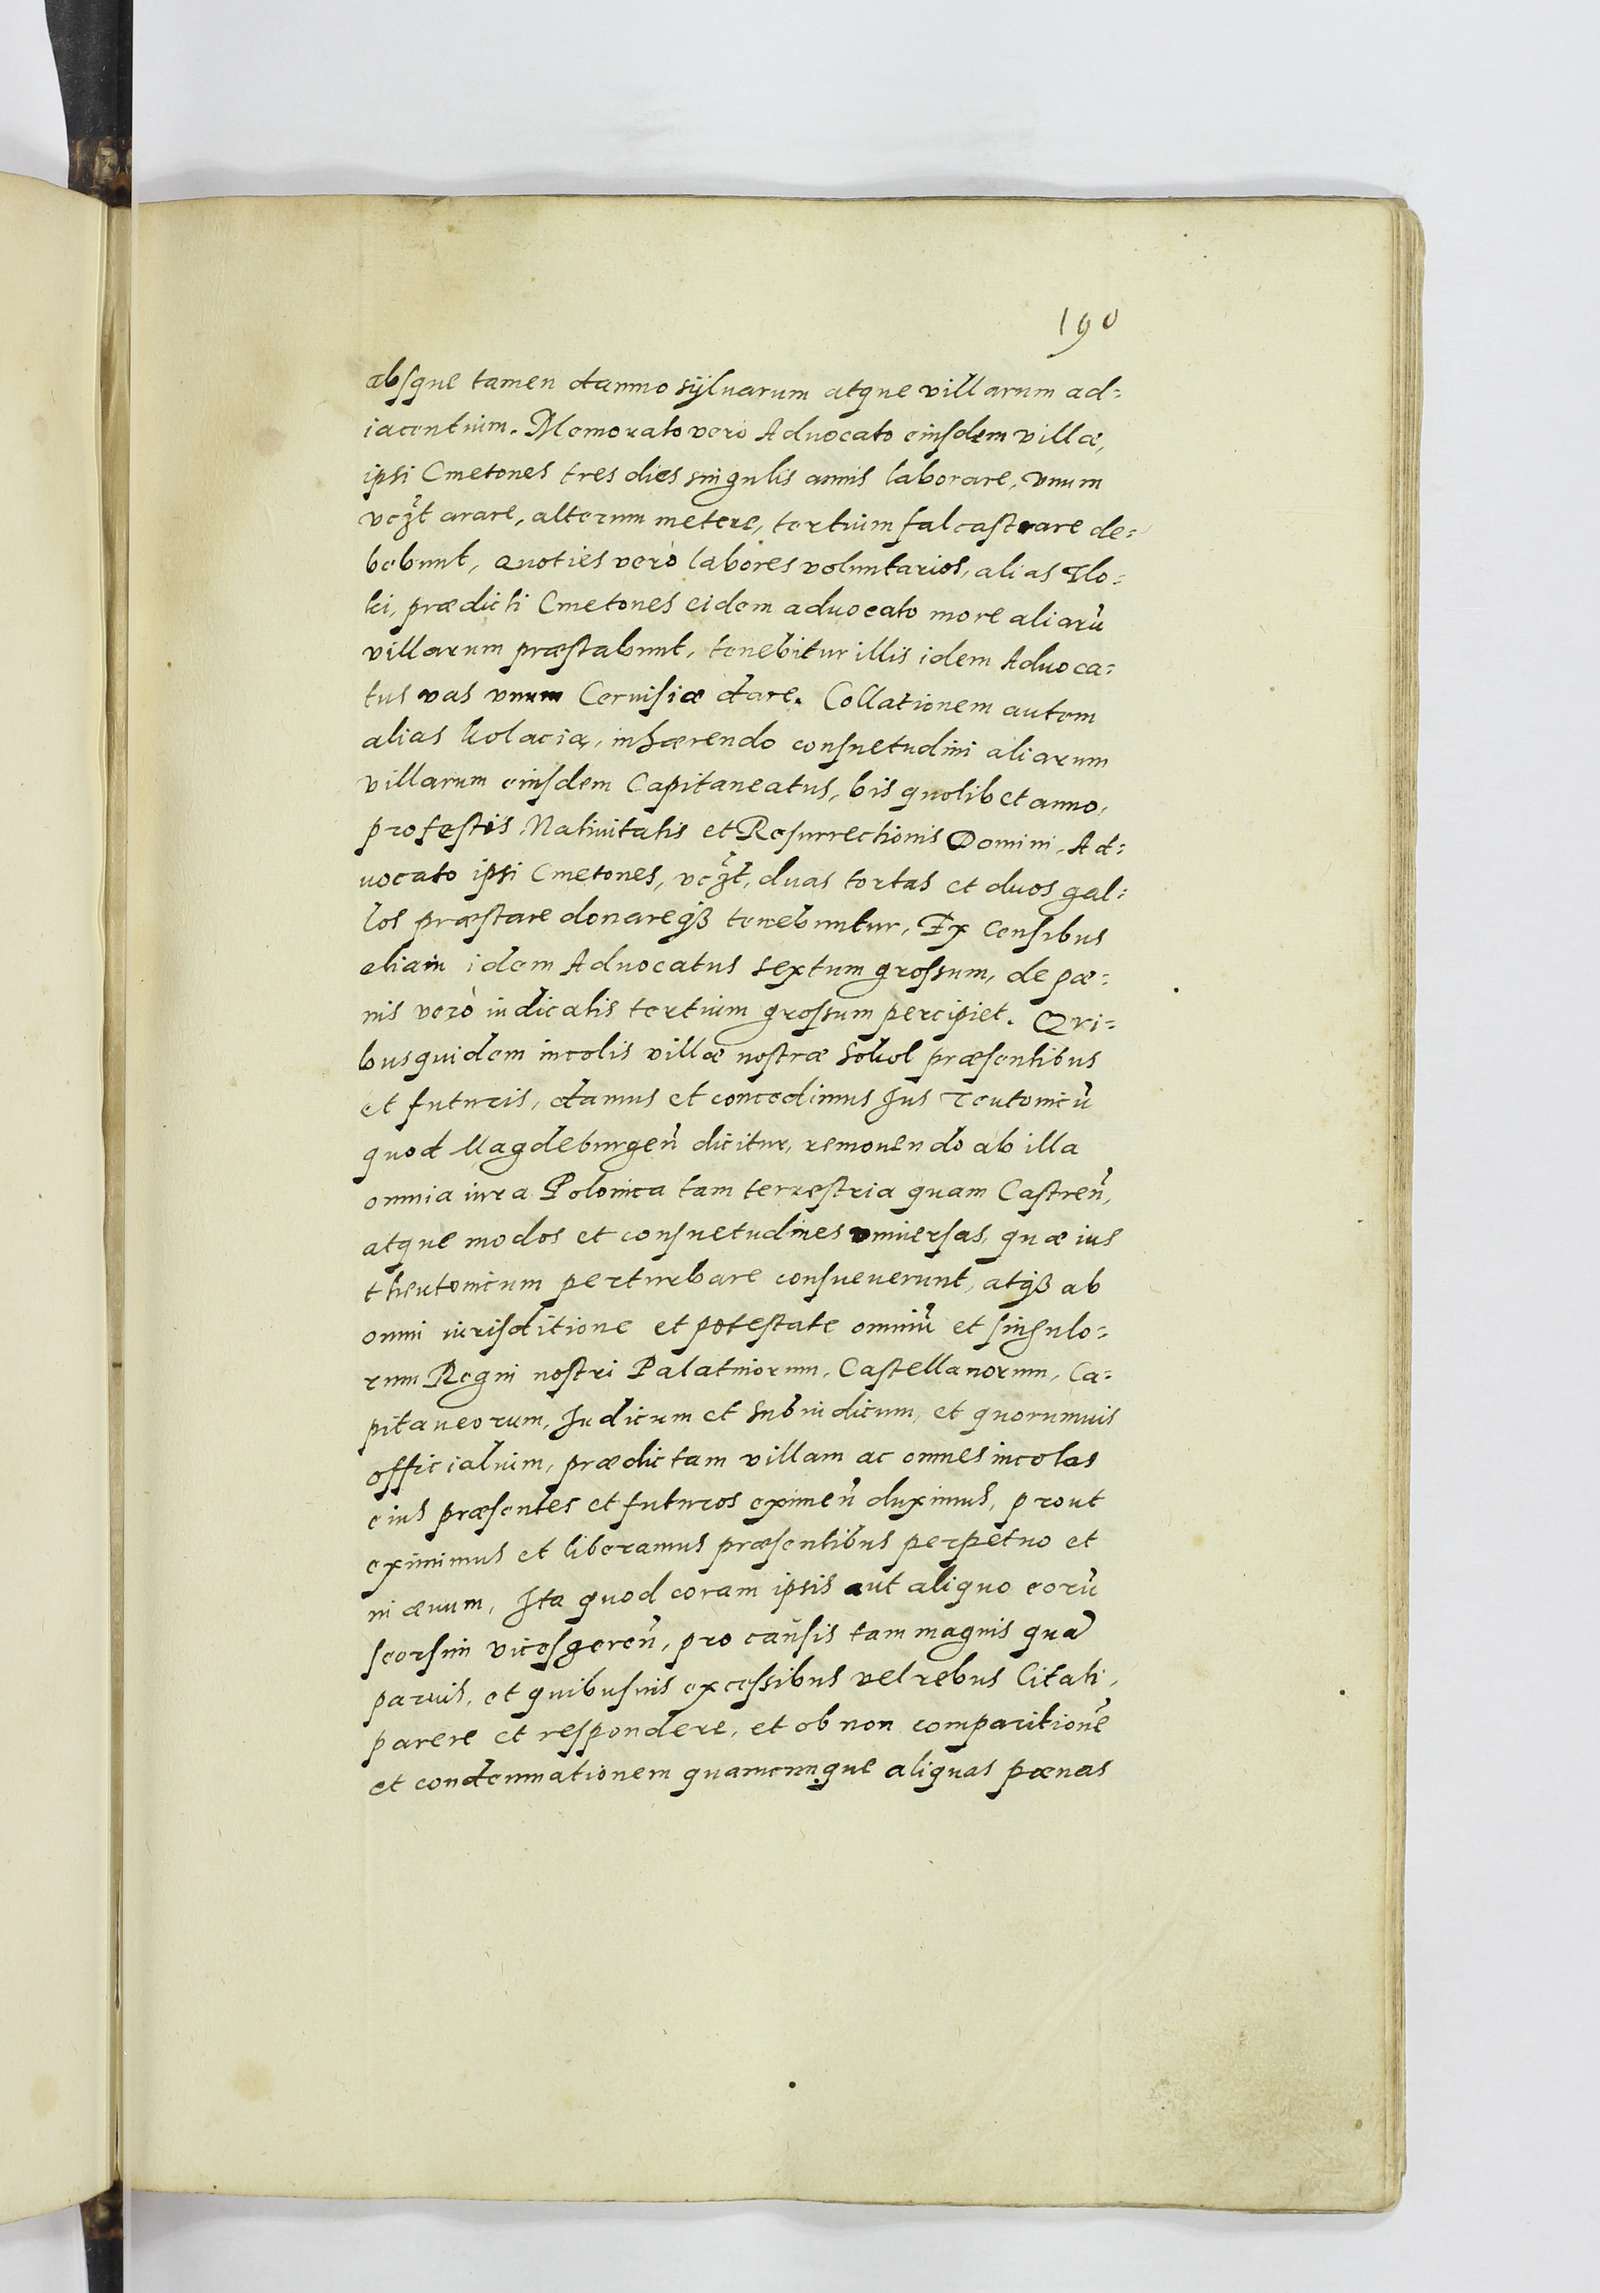 190
absque tamen damno syluarum atque villarum ad=
iacentium. Memorato vero Aduocato eiusdem villæ,
ipsi Cmetones tres dies singulis annis laborare, vnum
vczt arare, alterum metere, tertium falcastrare de=
bebunt, quoties verò labores voluntarios, alias Tlo=
ki, prædicti Cmetones eidem aduocato more aliarū
villarum præstabunt, tenebitur illis idem Aduoca=
tus vas vnum Ceruisiæ dare. Collationem autem
alias kolacią, inhærendo consuetudini aliarum
villarum eiusdem Capitaneatus, bis quolibet anno,
profestis Natiuitatis et Resurrectionis Domini, Ad=
uocato ipsi Cmetones, vczt, duas tortas et duos gal=
los præstare donareqꝫ tenebuntur, Ex Censibus
etiam idem Aduocatus sextum grossum, de pæ=
nis verò iudicatis tertium grossum percipiet. Qui=
busquidem incolis villæ nostræ Sokol præsentibus
et futuris, damus et concedimus Jus Teutonicū
quod Magdeburgen̄ dicitur, remouendo ab illa
omnia iura Polonica tam terrestria quam Castren̄,
atque modos et consuetudines vniuersas, quæ ius
theutonicum perturbare consueuerunt, atqꝫ ab
omni iurisditione et potestate omniū et singulo=
rum Regni nostri Palatinorum, Castellanorum, Ca=
pitaneorum, Judicum et Subiudicum, et quorumuis
officialium, prædictam villam ac omnes incolas
eius præsentes et futuros eximen̄ duximus, prout
eximimus et liberamus præsentibus perpetuo et
in æuum, Ita quod coram ipsis aut aliquo eorū
seorsim vicesgeren̄, pro causis tam magnis quā
paruis, et quibusuis excessibus vel rebus Citati,
parere et respondere, et ob non comparitionē
et condemnationem quamcunque aliquas pænas